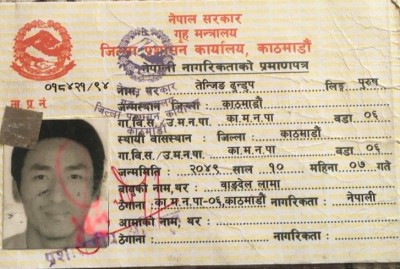 नेपाल सरकार
गृह मन्त्रालय
जिल्ला प्रशासन कार्यालय, काठमाडौं
नेपाली नागरिकताको प्रमाणपत्र
ना.प्र.नं.
नाम, थर: तेन्जिङ ढुन्डुप लिङ्ग: पुरुष
जन्मस्थान जिल्ला: काठमाडौं
गा.वि.स./उ.म.न.पा.: का.म.न.पा वडा ०६
स्थायी वासस्थान जिल्ला: काठमाडौं
गा.वि.स./उ.म.न.पा.: का.म.न.पा वडा ०६
जन्ममिति: २०४९ साल १० महिना ०७ गते
बाबुको नाम, थर: वाङदेल लामा
ठेगाना: का.म.न.पा-०६, काठमाडौं नागरिकता: नेपाली
आमाको नाम, थर:
ठेगाना: नागरिकता: